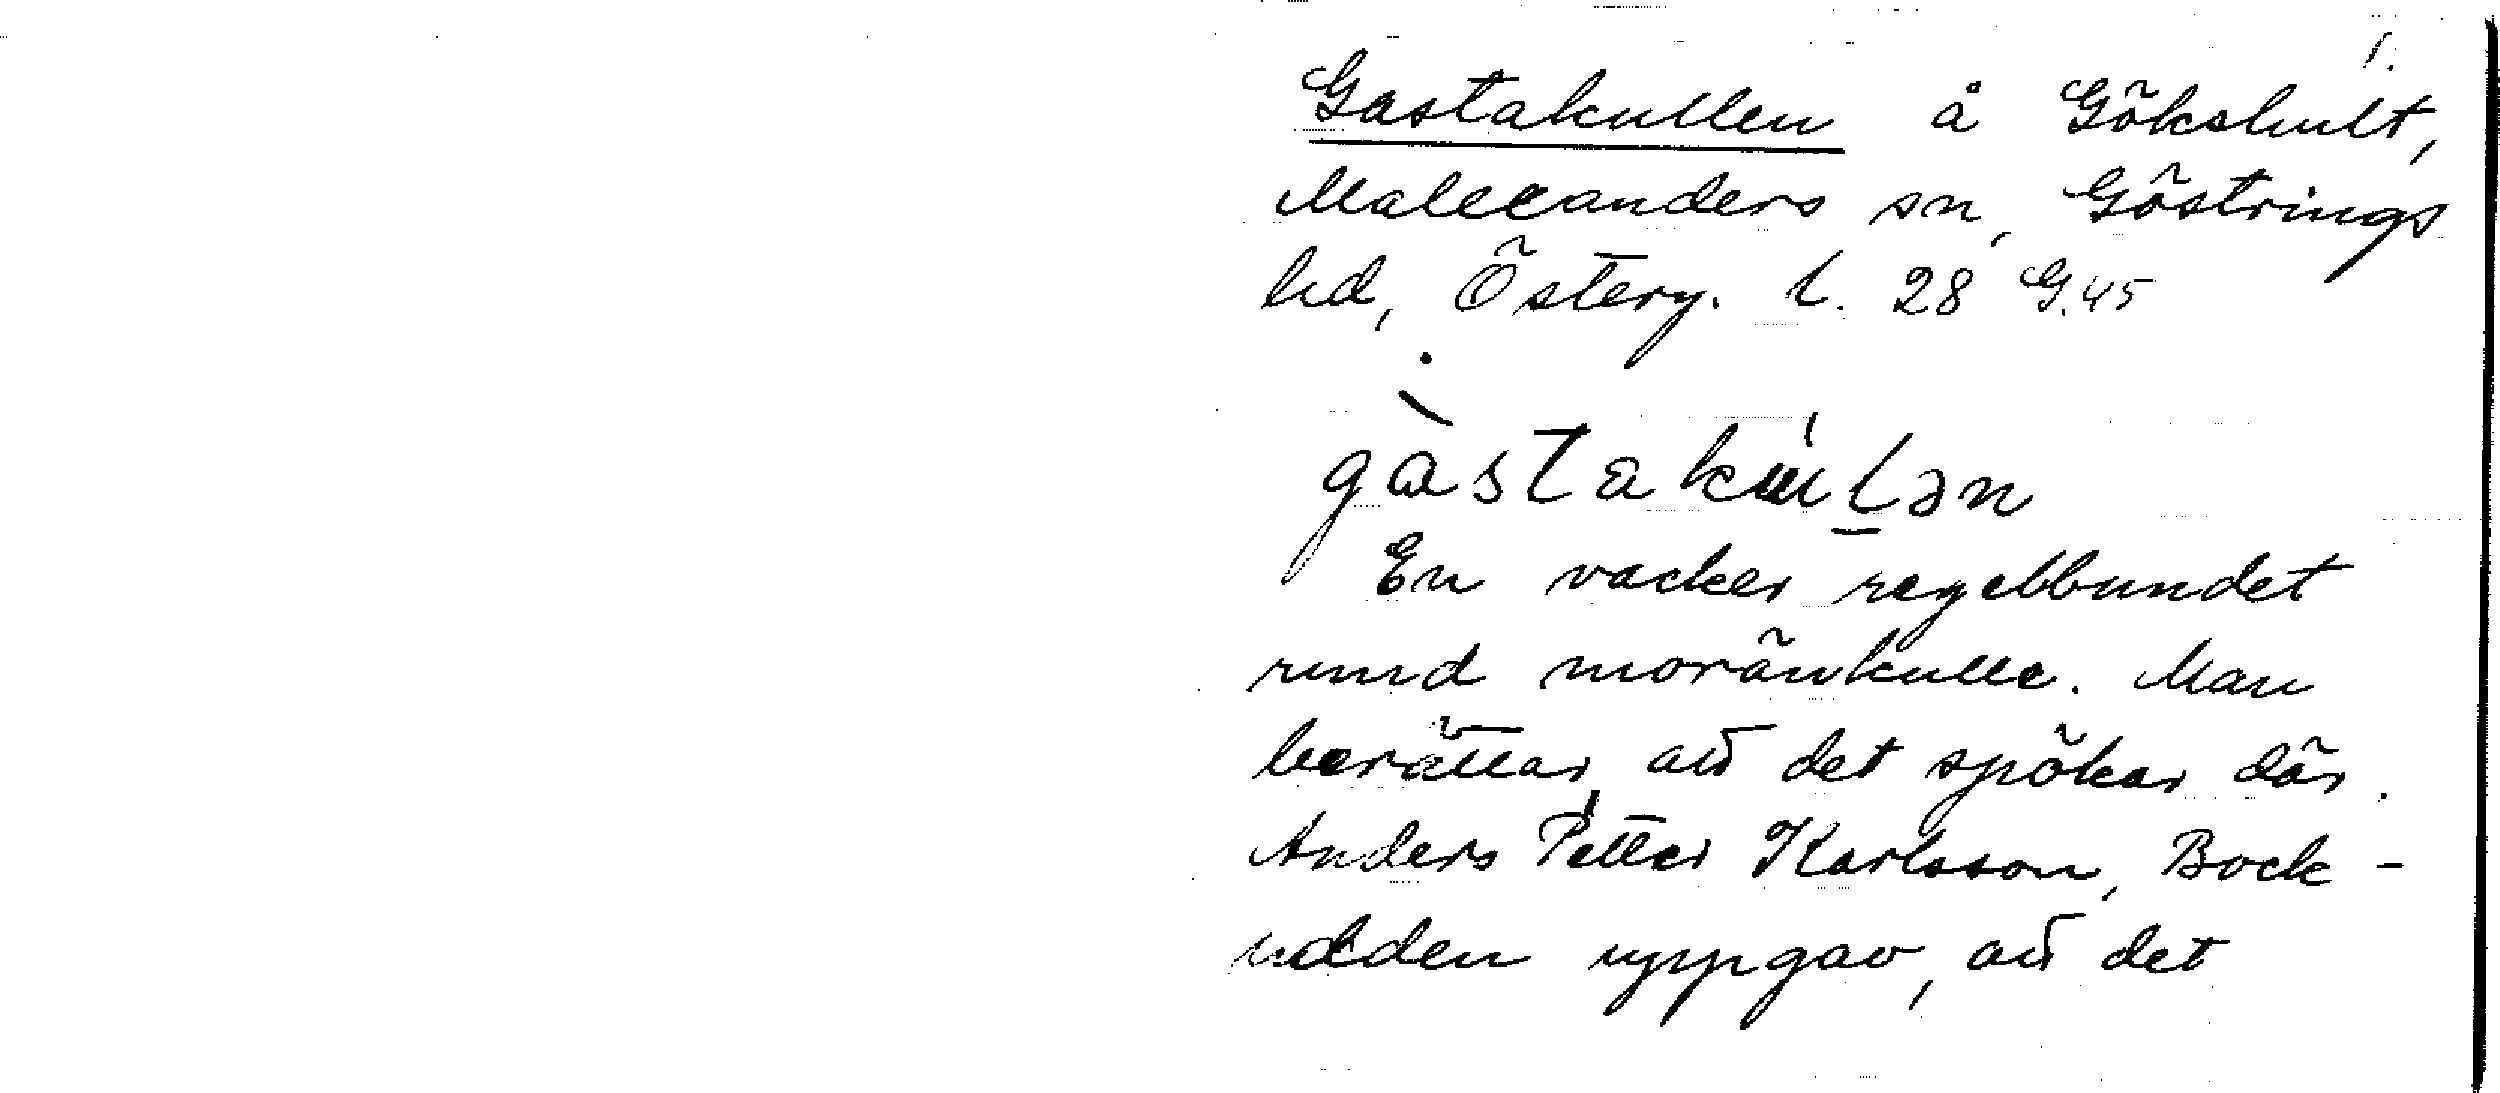 1.
Gastakullen å Gökshult,
Malexanders sn, Göstrings
hd, Österg. l. 28 G.45
gàstakúlən
En vacker regelbundet
rund moränkulle. Man
berättar att det spökar där.
Anders Petter Karlsson, Bock-
udden uppgav, att det